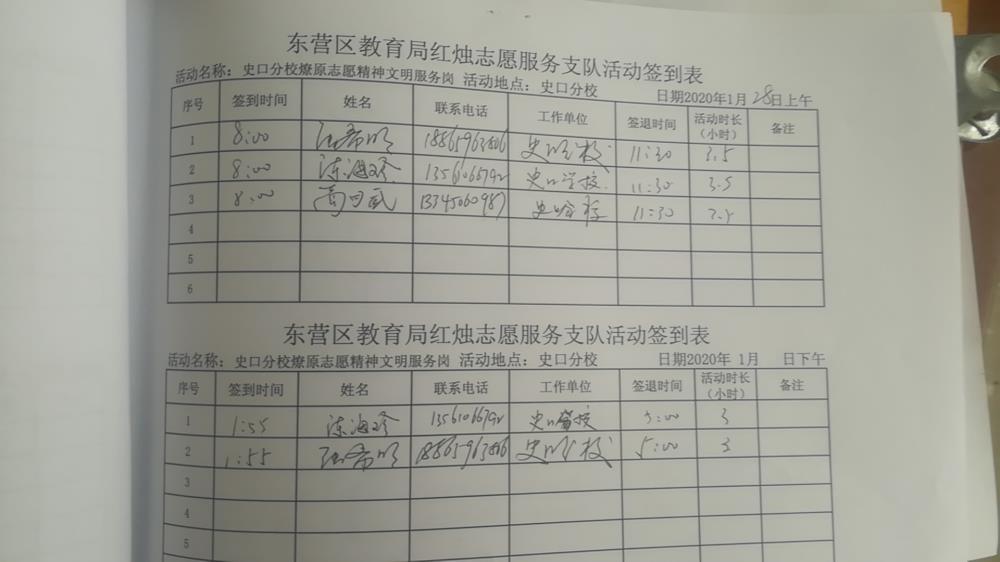 东营区教育局红烛志愿服务支队活动签到表
活动名称：史口分校燎原志愿精神文明服务岗 活动地点：史口分校 日期2020年1月28日上午
序号 签到时间 姓名 联系电话 工作单位 签退时间 活动时长（小时） 备注
1 8:00 18865963806 11:30 3.5
2 8:00 陈海珍 史口学校 11:30 3.5
3 8:00 11:30
4
5
6
东营区教育局红烛志愿服务支队活动签到表
活动名称：史口分校燎原志愿精神文明服务岗 活动地点：史口分校 日期2020年 1月 日下午
序号 签到时间 姓名 联系电话 工作单位 签退时间 活动时长（小时） 备注
1 1:55 陈海珍 5:00 3
2 1:55 18865963806 5:00 3
3
4
5